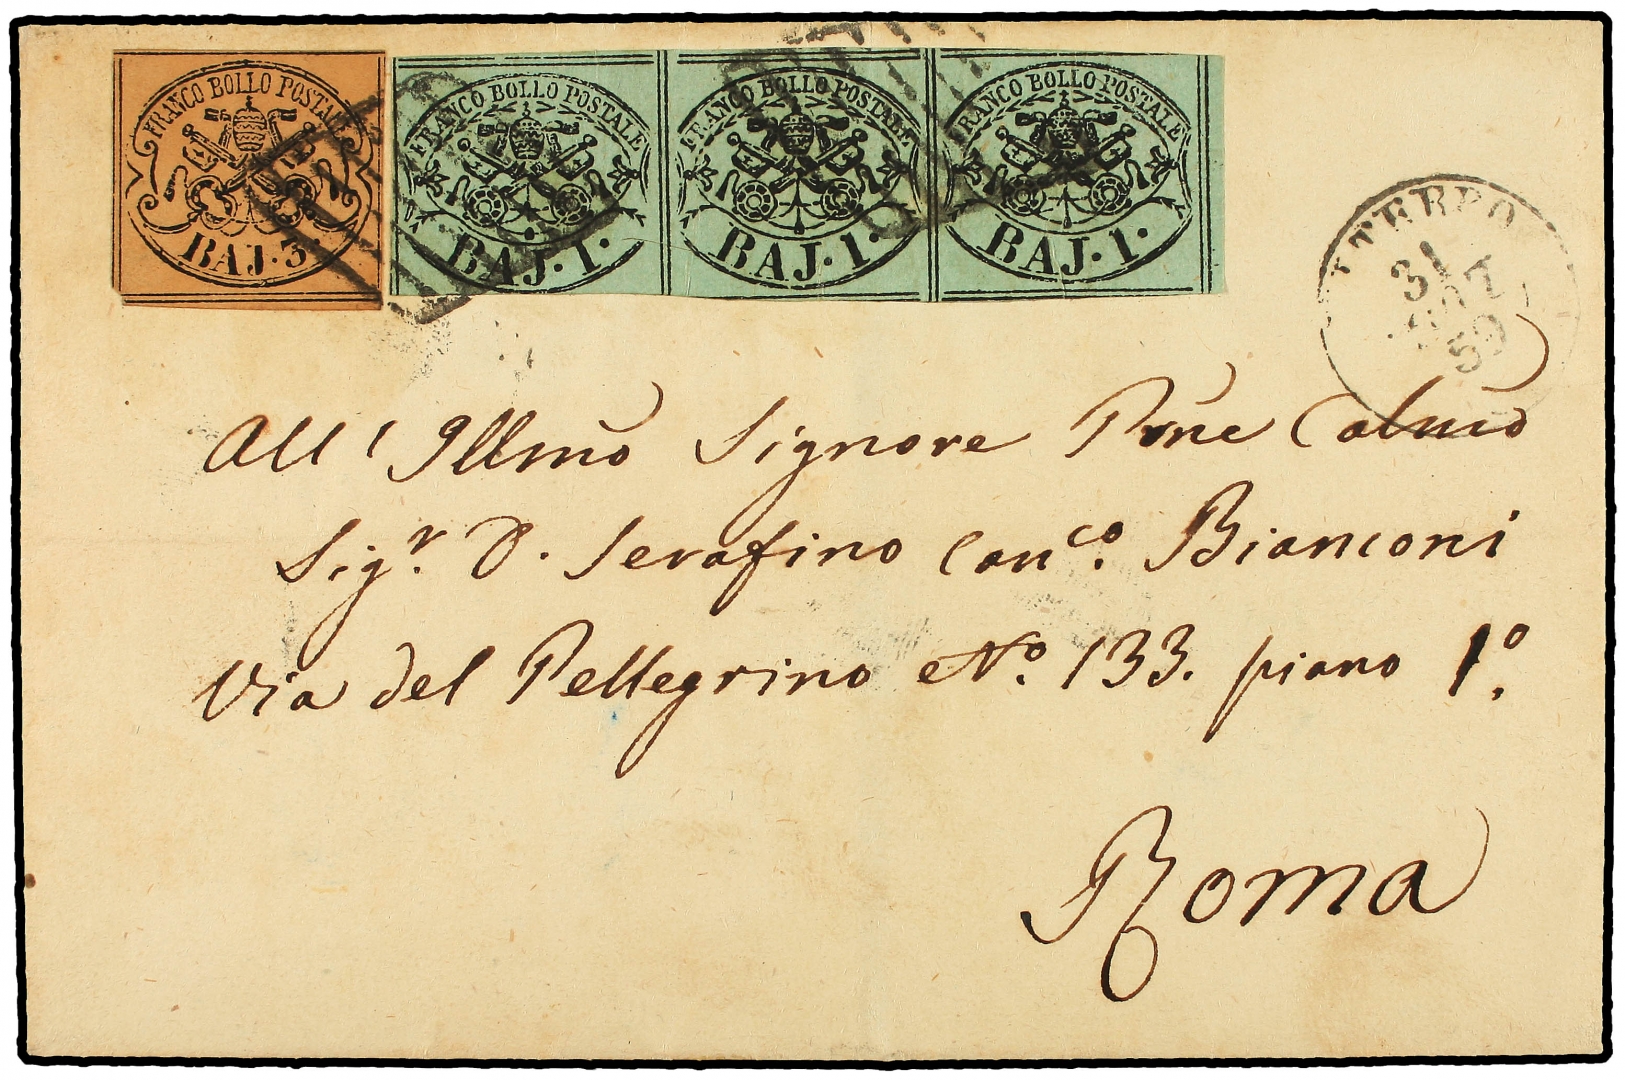 FRANCO BOLLO POSTALE
BAJ. 3.
FRANCO BOLLO POSTALE
BAJ. 1.
FRANCO BOLLO POSTALE
BAJ. 1.
FRANCO BOLLO POSTALE
BAJ. 1.
ITERBO
31
59
All' Illmo Signore Prne Colmo
Sigr. D. Serafino Canco. Bianconi
Via del Pellegrino No. 133. piano 1o.
Roma